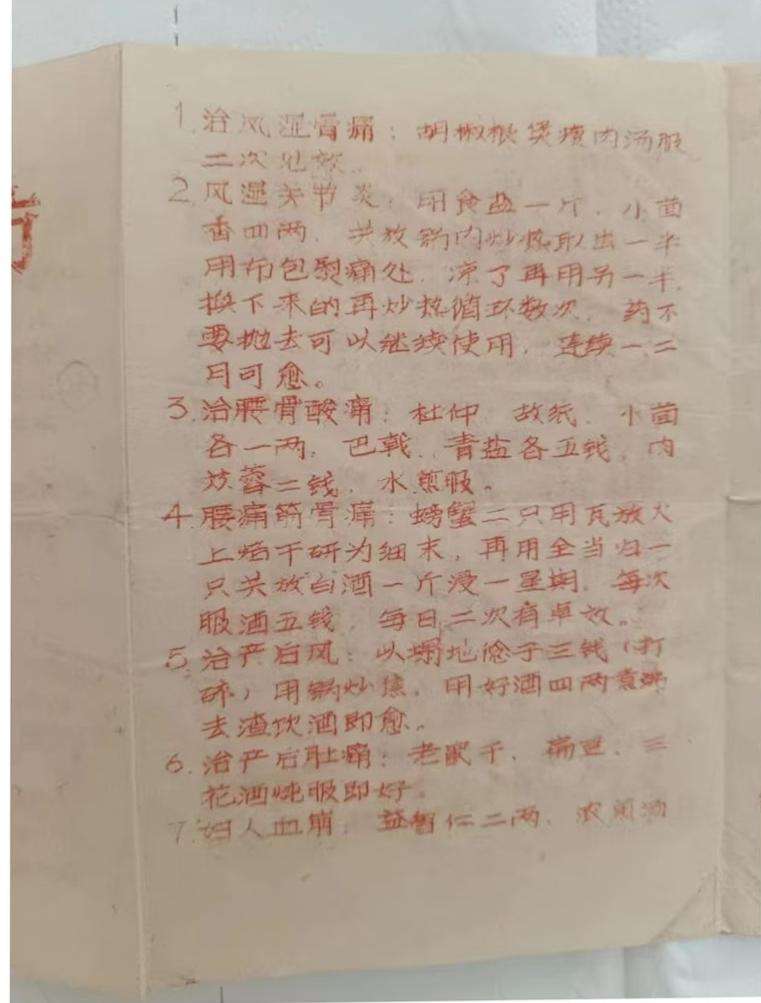 1.治风湿骨痛：胡椒根煲瘦肉汤服
二次见效.
2.风湿关节炎：用食盐一斤.小茴
香四两.共放锅内炒热取出一半
用布包熨痛处.凉了再用另一半.
换下来的再炒热循环数次.药不
要抛去可以继续使用.连续一二
月可愈。
3.治腰骨酸痛：杜仲.故纸.小茴
各一两.巴戟.青盐各五钱.肉
苁蓉二钱.水煎服。
4.腰痛筋骨痛：螃蟹二只用瓦放火
上焙干研为细末，再用全当归一
只共放白酒一斤浸一星期.每次
服酒五钱.每日二次有卓效。
5.治产后风：以塌地念子三钱（打
碎）用锅炒焦.用好酒四两煮沸
去渣饮酒即愈。
6.治产后肚痛：老鼠干.扁豆.三
花酒炖服即好.
7.妇人血崩：益智仁二两.浓煎汤